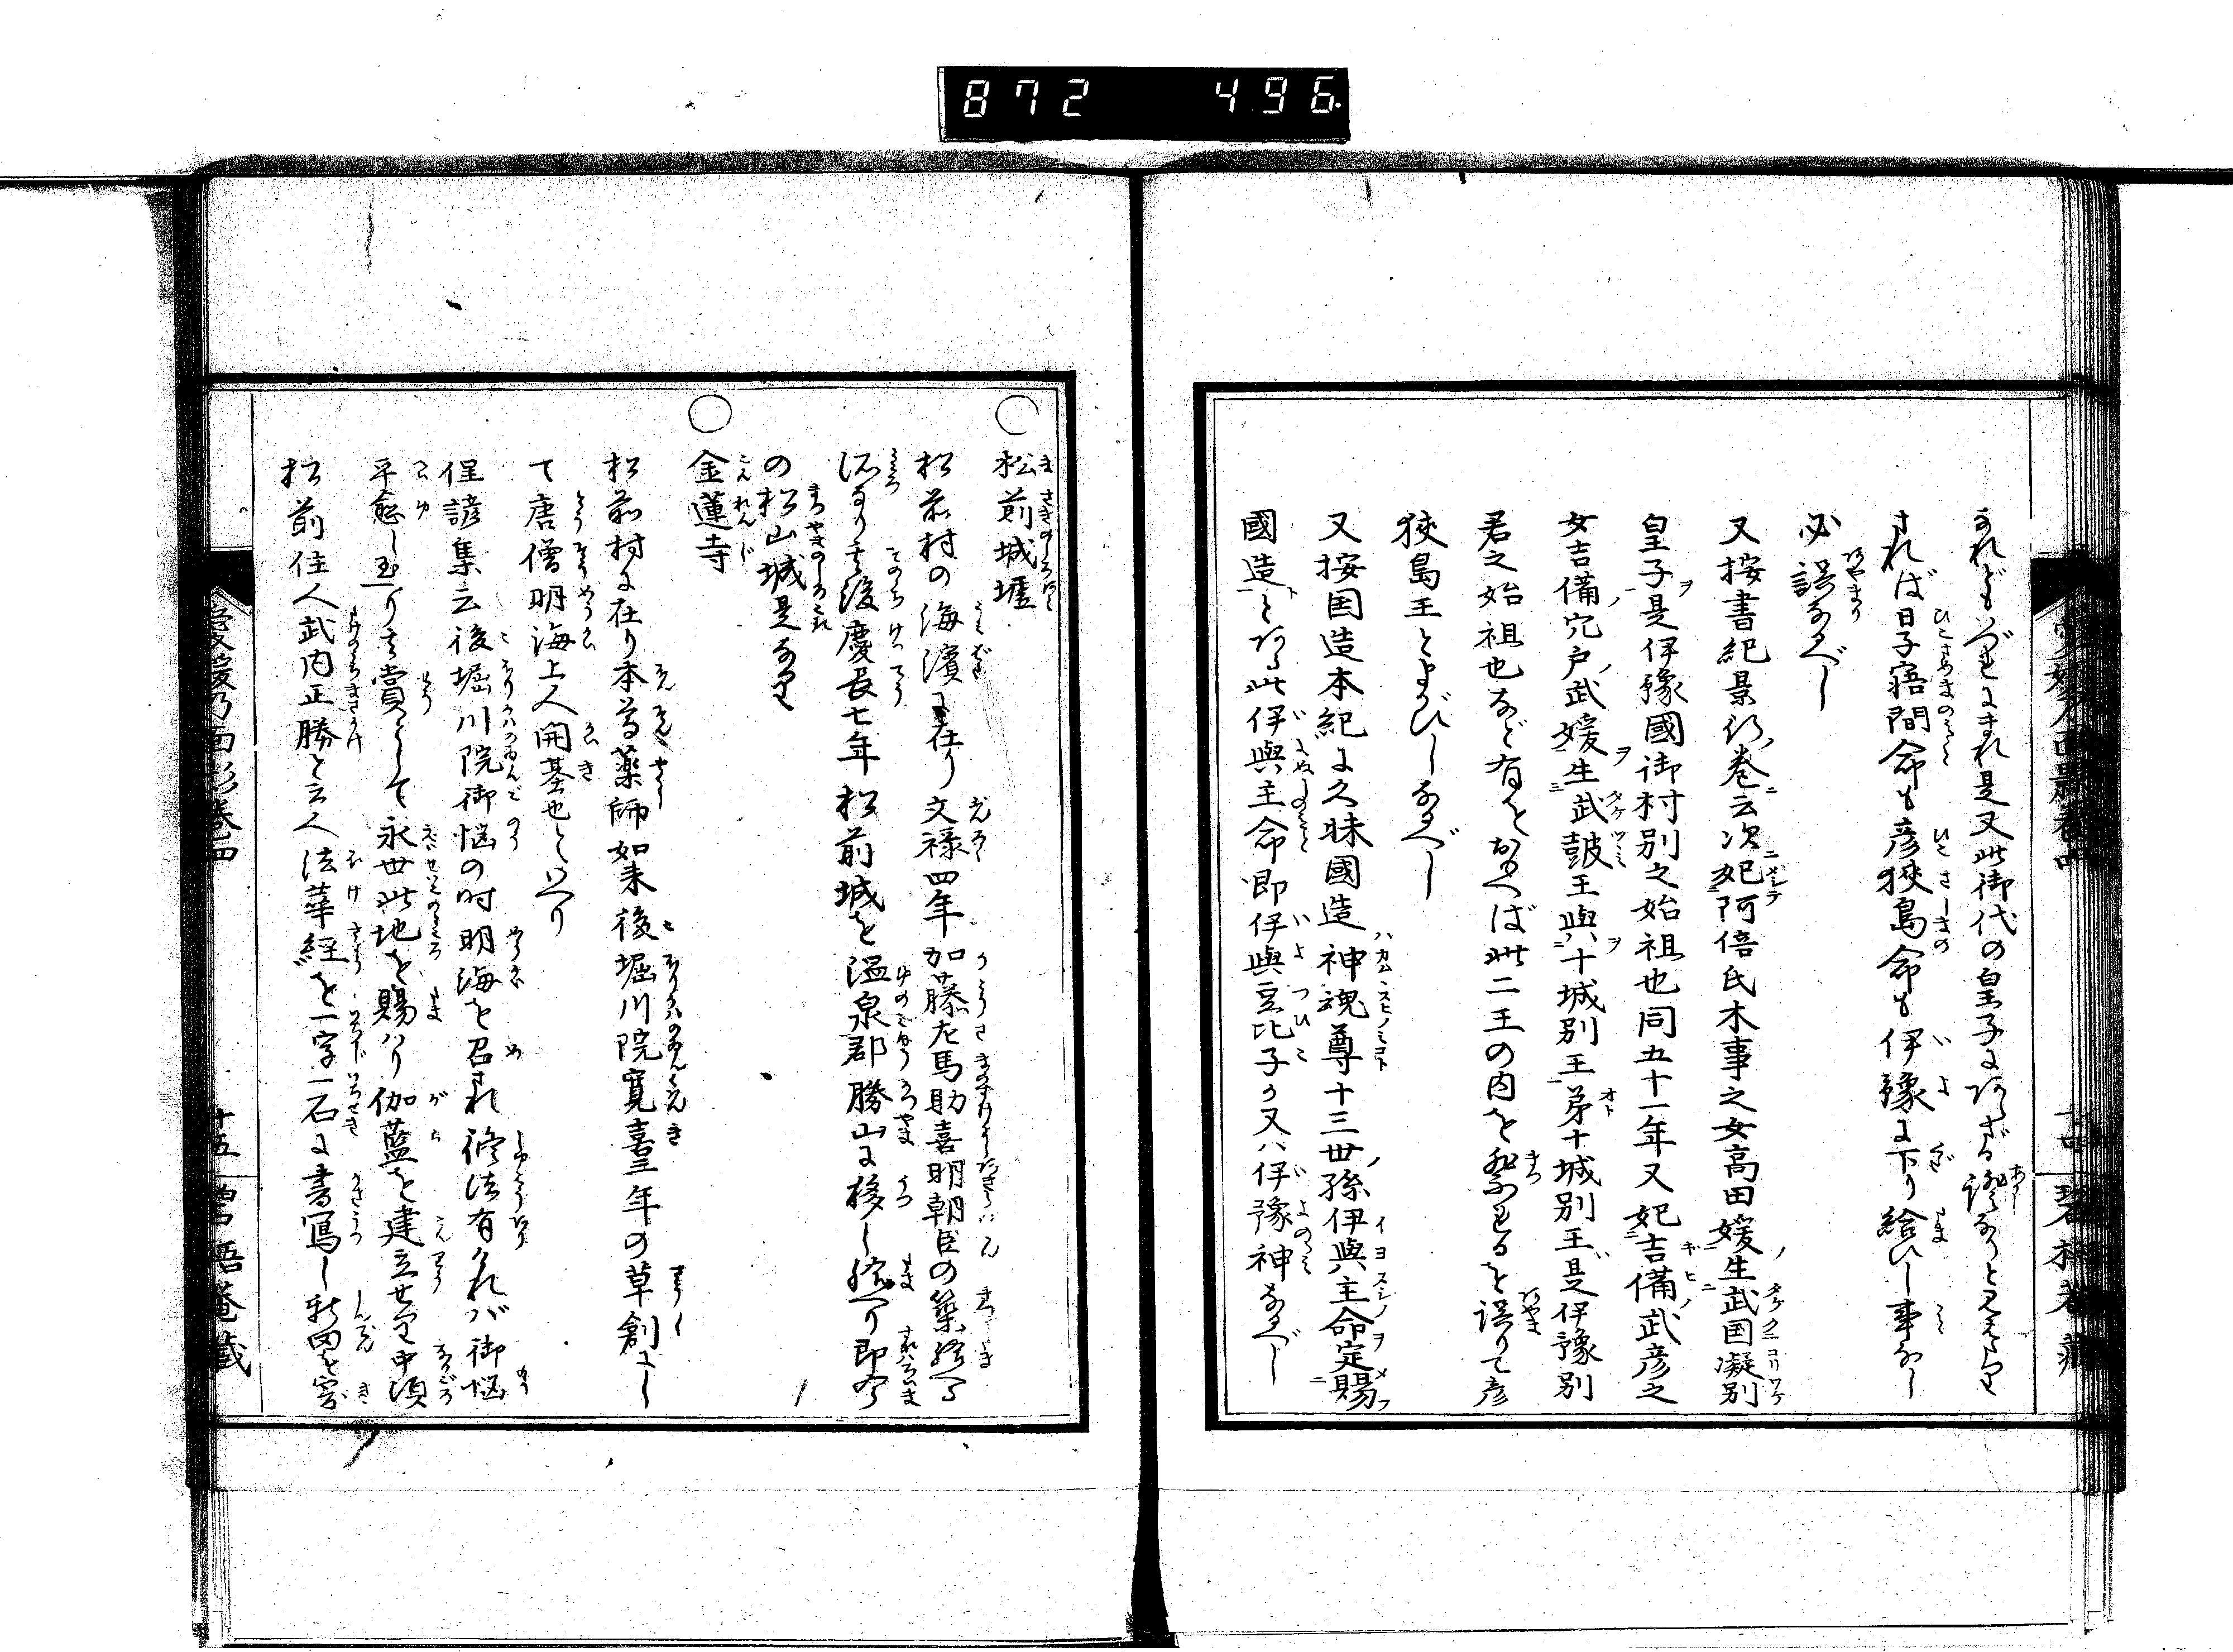 872 496
なれどもいづれにまれ是又此御代の皇子にあらざる證なりと見えたり
されば日子寤間命も彦狭島命も伊豫に下り給ひし事なし
必誤なるべし
又按書紀景行ノ巻ニ云次妃阿倍氏木事之女高田媛生武国凝別
皇子是伊豫國御村別之始祖也同五十一年又妃吉備武彦之
女吉備穴戸武媛生武鼓王與十城別王弟十城別王是伊豫別
君之始祖也など有をおもへば此二王の内を祭れるを誤りて彦
狭島王とよびしなるべし
又按国造本紀に久味國造神魂尊十三世孫伊與主命定賜
國造とある此伊與主命即伊與豆比子か又ハ伊豫神なるべし
松前城墟
松前村の海濱に在り文禄四年加藤左馬助嘉明朝臣の築給へる
所なり其後慶長七年松前城を温泉郡勝山に移し給へり即今
の松山城是なり
金蓮寺
松前村に在り本尊薬師如来後堀川院寛喜三年の草創にし
て唐僧明海上人開基也といへり
俚諺集云後堀川院御悩の時明海を召され修法有ければ御悩
平愈し玉へり其賞として永世此地を賜ハり伽藍を建立せり中頃
松前住人武内正勝と云人法華経を一字一石に書写し新田を寄
愛媛乃面影巻四
十五
碧梧菴蔵